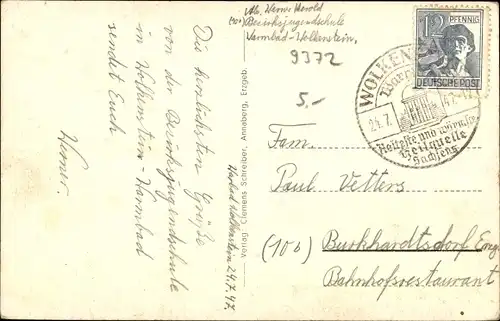 Die herzlichsten Grüße
von der Bezirksjugendschule
in Wolkenstein-Warmbad
sendet Euch
Werner.
Verlag Clemens Schreiber, Annaberg, Erzgeb.
Warmbad Wolkenstein 24.7.47.
Abs. Werner Herold
(10) Bezirksjugendschule
Warmbad-Wolkenstein.
9372
5.-
12 PFENNIG
DEUTSCHE POST
WOLKEN
24.7. 47
Älteste und wärmste
Heilquelle
Sachsens
Fam.
Paul Vetters
(10b) Burkhardtsdorf Erzg
Bahnhofsrestaurant